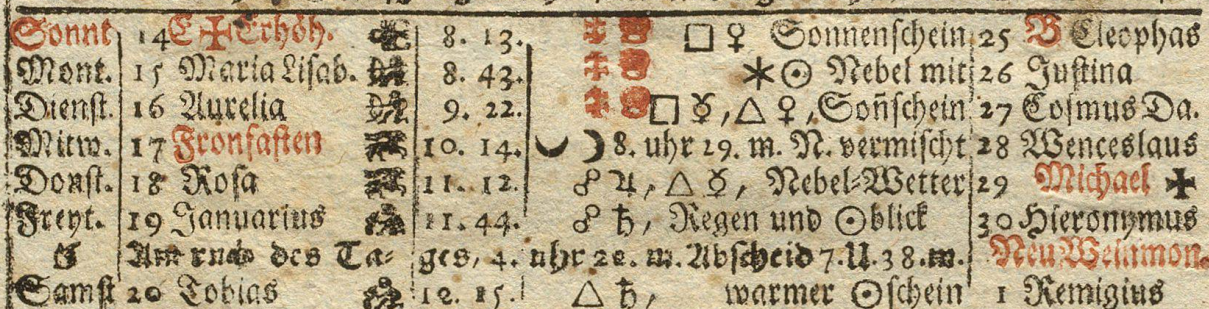 Sonnt 14 E ✠ Erhöh. 8. 13. □ ♀ Sonnenschein 25 B Cleophas
Mont. 15 Maria Lisab. 8. 43. ⚹ ☉ Nebel mit 26 Justina
Dienst. 16 Aurelia 9. 22. □ ☿, △ ♀, Soñschein 27 Cosmus Da.
Mitw. 17 Fronfasten 10. 14. ☽ 8. uhr 29. m. N. vermischt 28 Wenceslaus
Donst. 18 Rosa 11. 12. ☍ ♃, △ ☿, Nebel-Wetter 29 Michael ✠
Freyt. 19 Januarius 11. 44. ☍ ♄, Regen und ☉blick 30 Hieronymus
des Ta- ges, 4. uhr m. Abscheid 7. U. 38. m. Neu Weinmon.
Samst 20 Tobias 12. 15. △ ♄, warmer ☉schein 1 Remigius